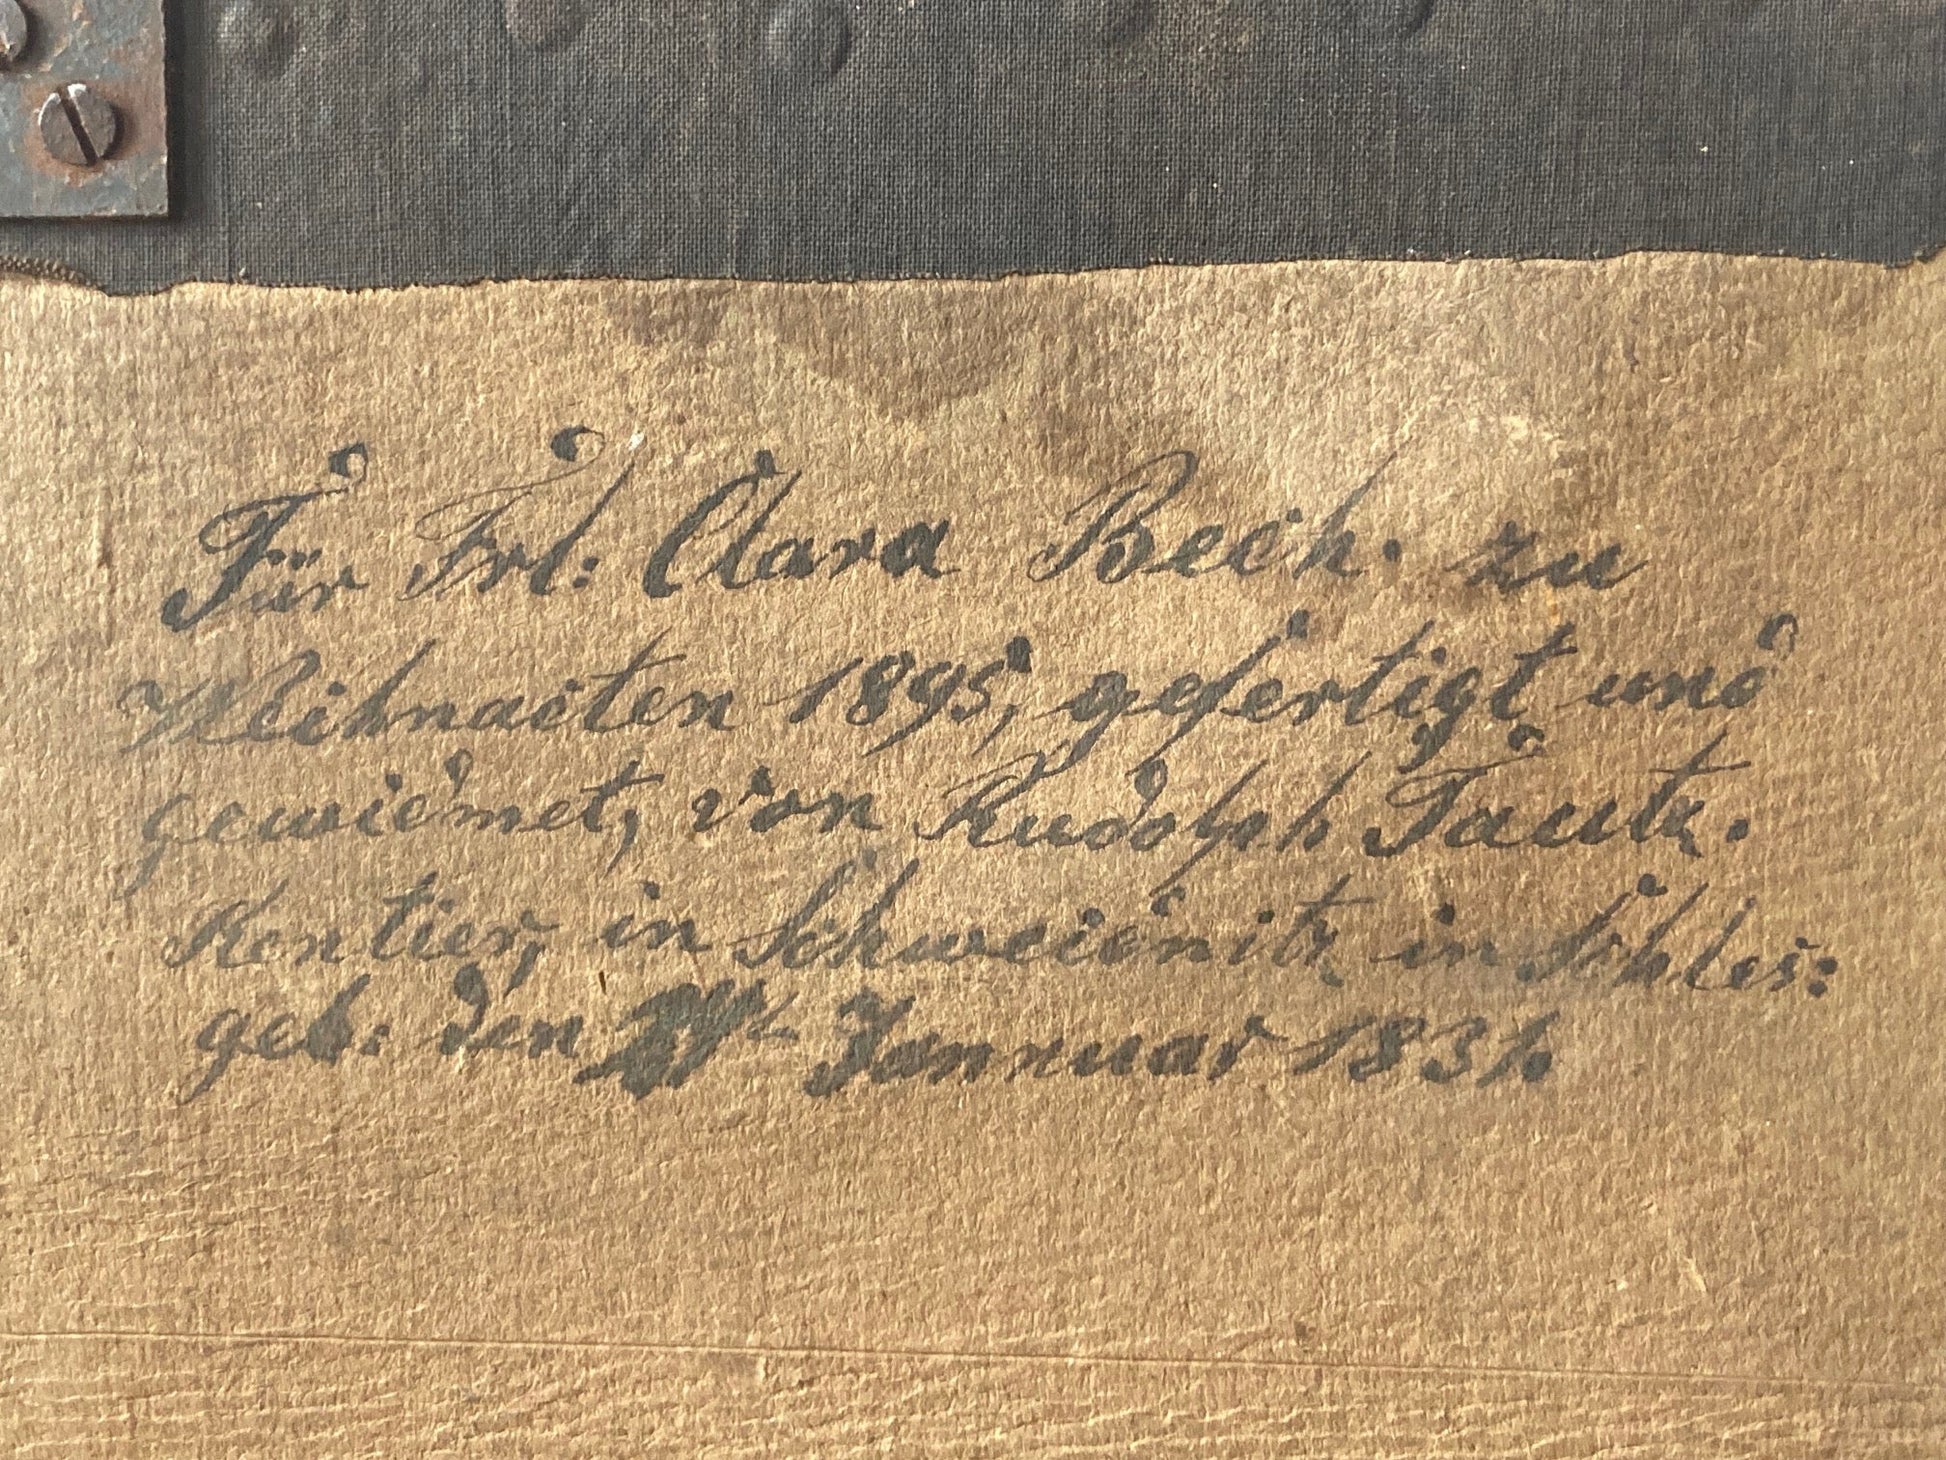 Für Frl: Clara Bech. zu
Weihnacten 1895, gefertigt und
gewidmet, von Rudolph Tautz.
Rentier, in Schweidnitz in Schles:
geb: den Januar